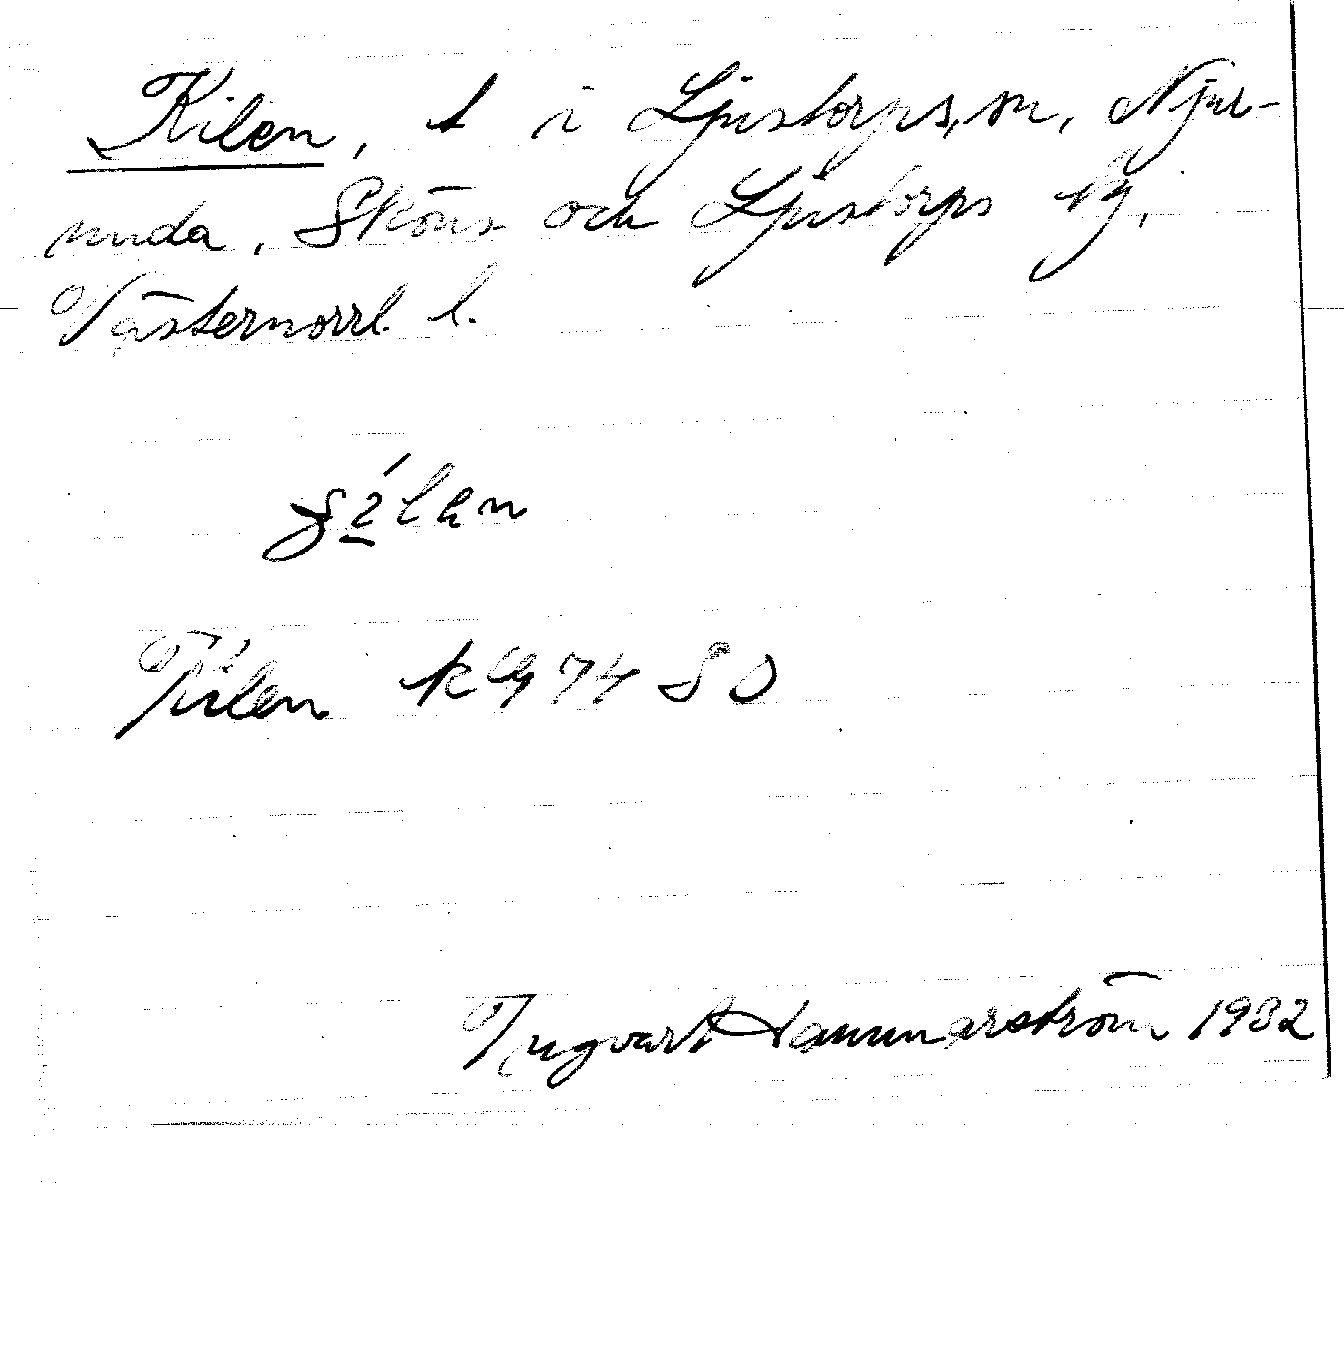 Kilen, t i Ljustorps sn, Nju-
runda, Sköns och Ljustorps tg,
Västernorrl. l.
Kilen k Gg 74 80
Ingvart Hammarström 1932